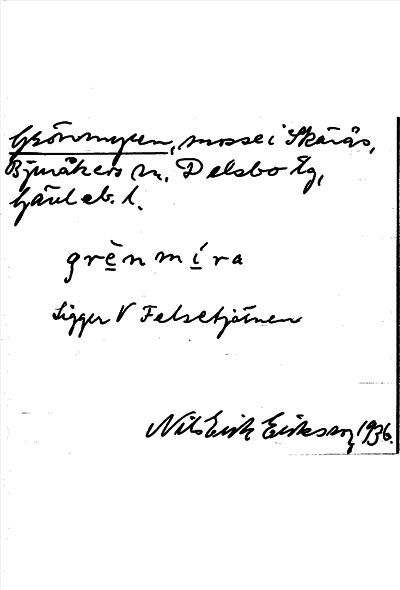 Grönmyren, mosse i Skärås,
Bjuråkers sn, Delsbo tg,
Gävleb. l.
grènmíra
Ligger V Falsetjärnen
Nils Erik Eriksson 1936.